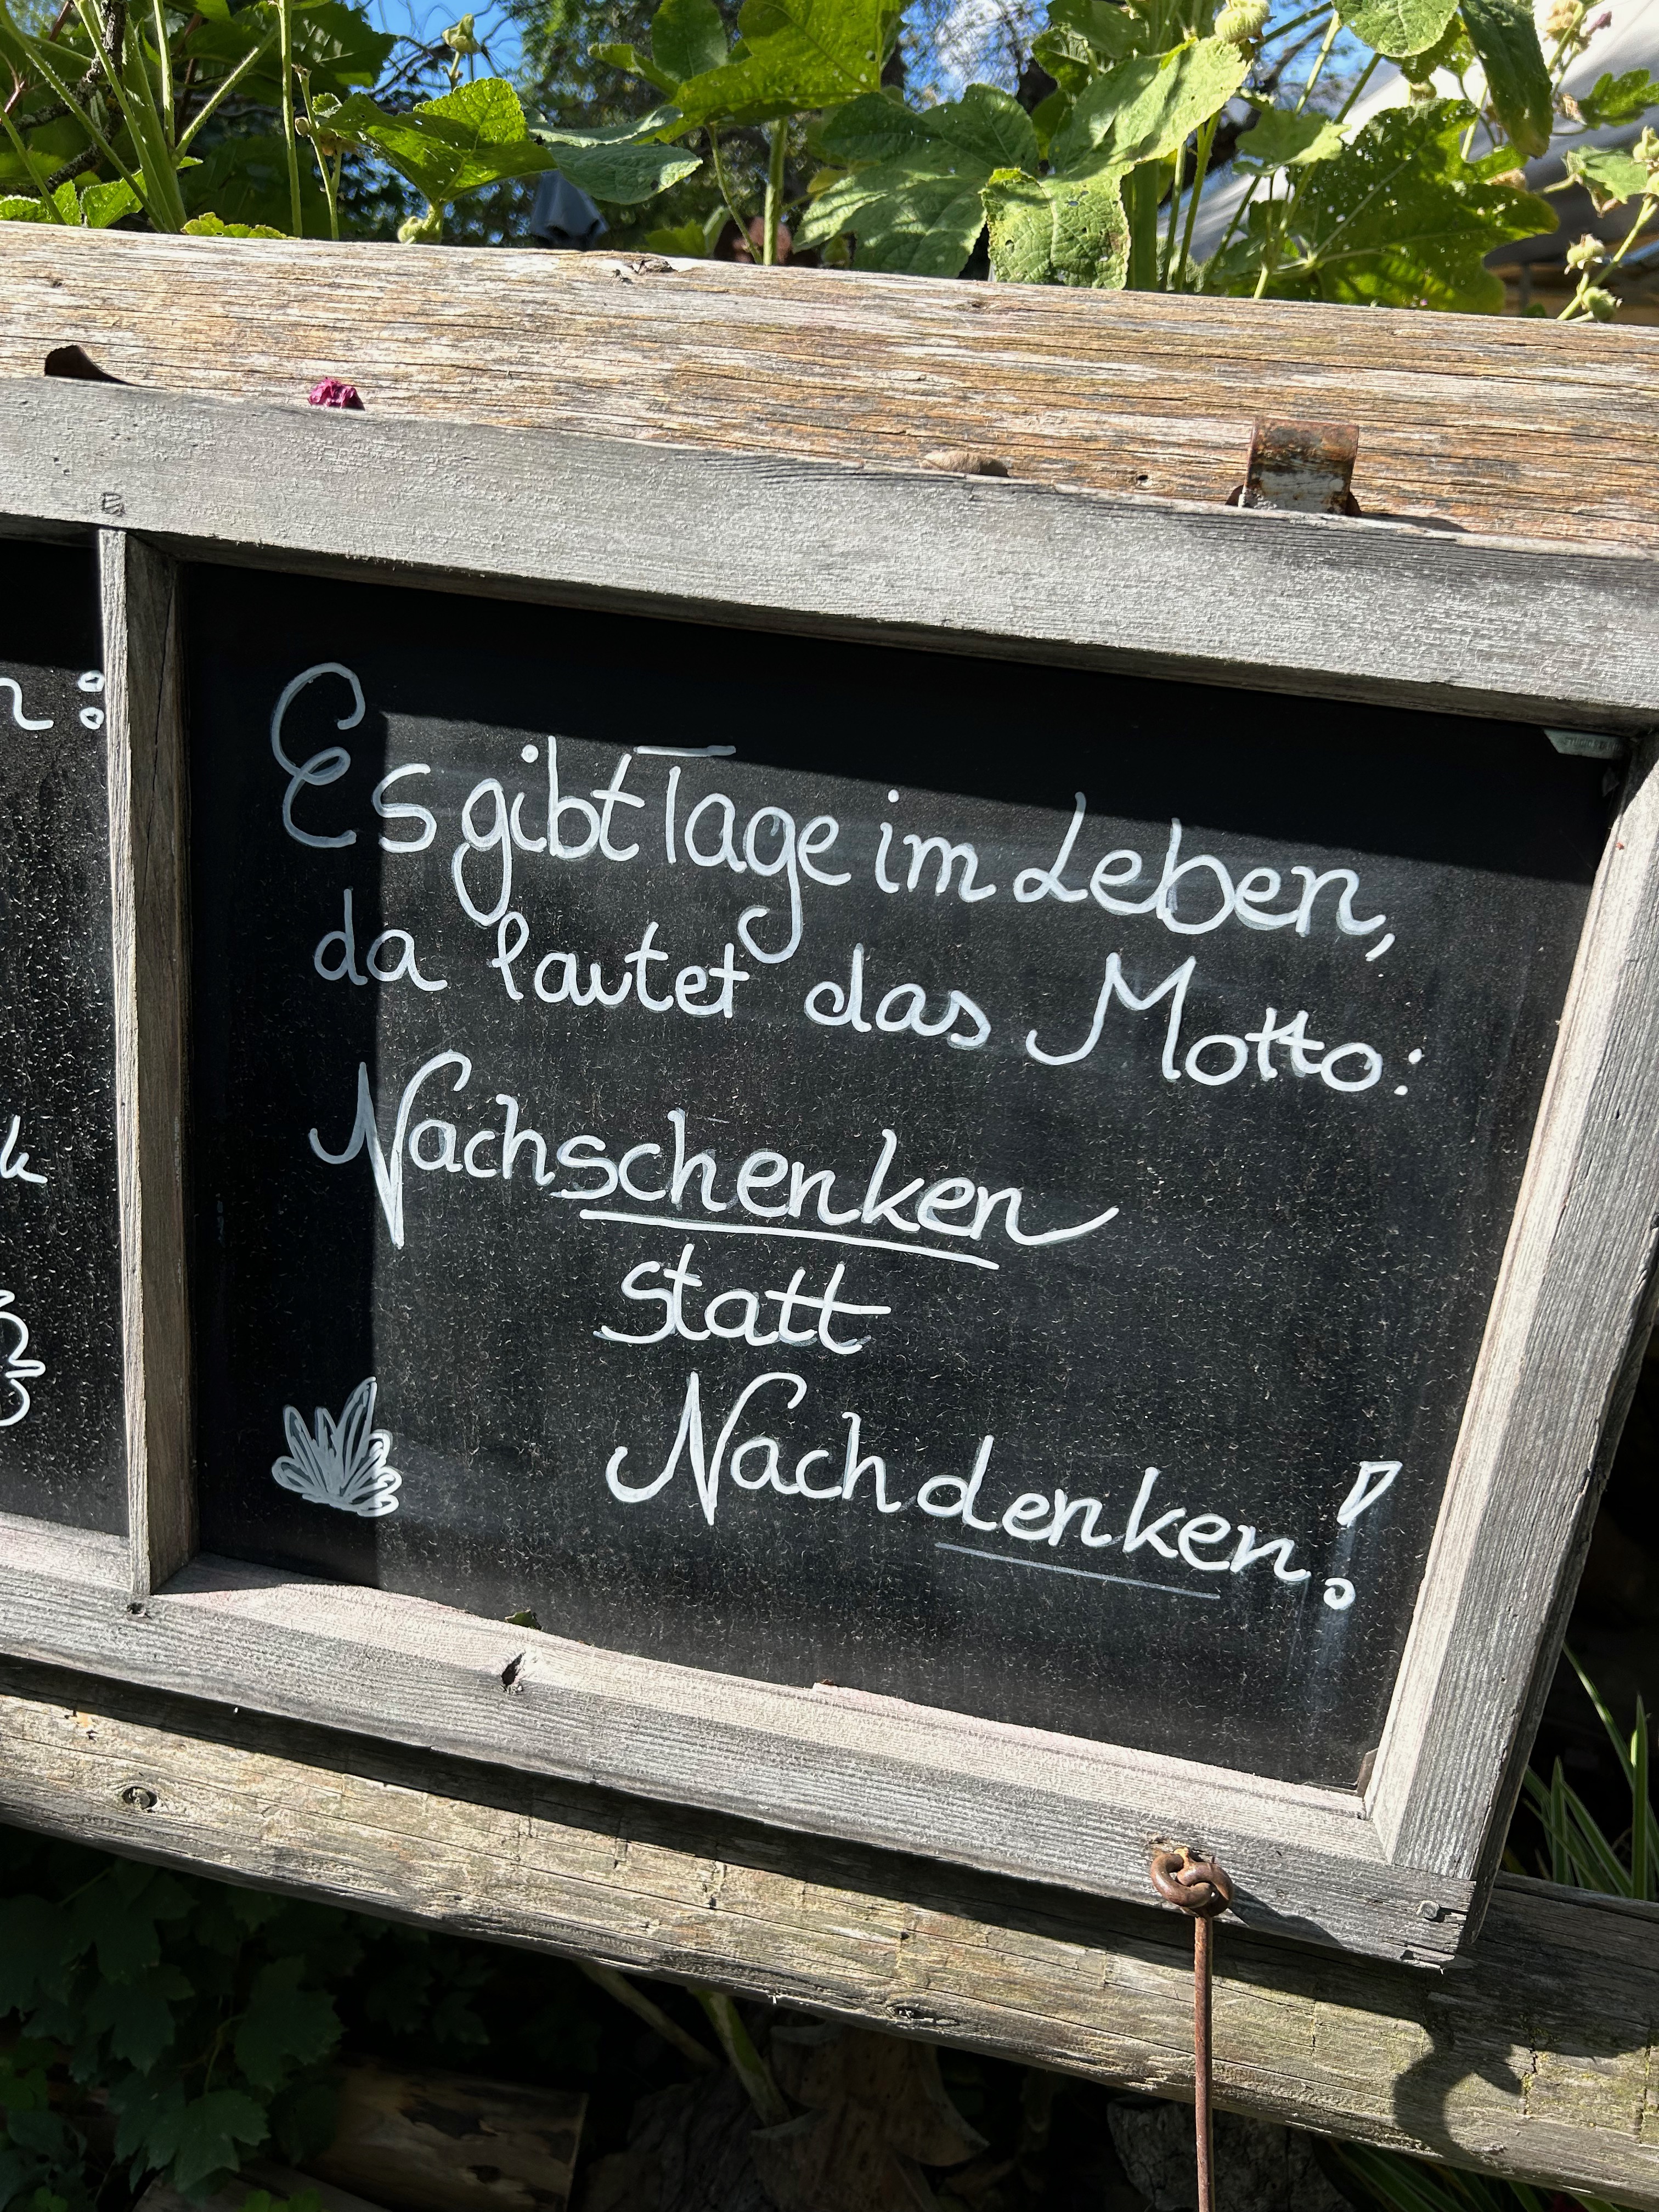 Es gibt Tage im Leben,
da lautet das Motto:
Nachschenken
statt
Nachdenken!